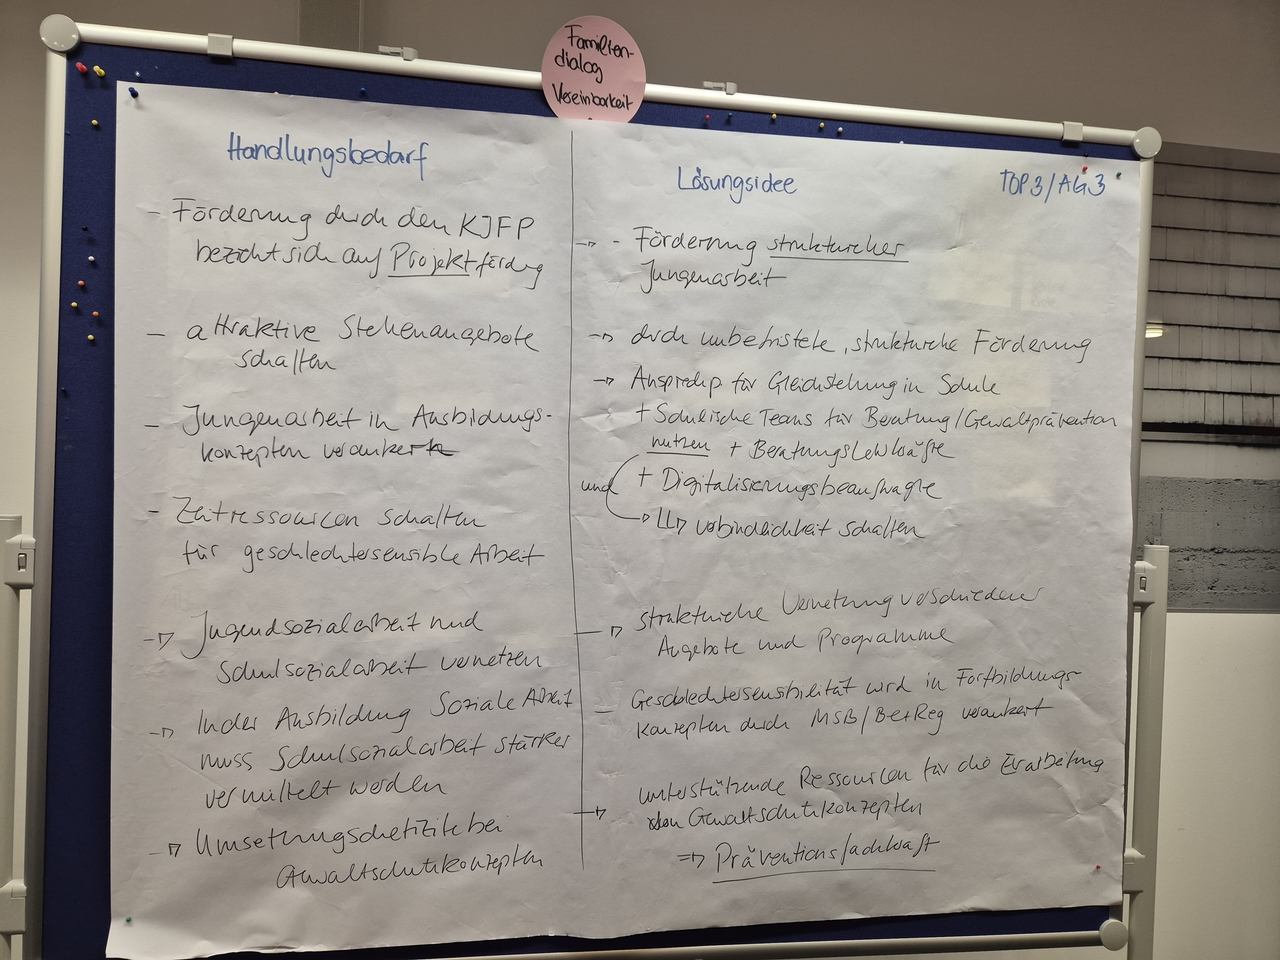 Familien-
dialog
Vereinbarkeit
Handlungsbedarf
- Förderung durch den KJFP
bezieht sich auf Projektförderung
- attraktive Stellenangebote
schaffen
- Jungenarbeit in Ausbildungs-
konzepten verankern
- Zeitressourcen schaffen
für geschlechtersensible Arbeit
→ Jugendsozialarbeit und
Schulsozialarbeit vernetzen
→ In der Ausbildung Soziale Arbeit
muss Schulsozialarbeit stärker
vermittelt werden
→ Umsetzungsdefizite bei
Gewaltschutzkonzepten
Lösungsidee
TOP 3/AG 3
→ - Förderung struktureller
Jungenarbeit
→ durch unbefristete, strukturelle Förderung
→ Ansprechp für Gleichstellung in Schule
+ Schulische Teams für Beratung/Gewaltprävention
nutzen + Beratungslehrkräfte
und + Digitalisierungsbeauftragte
→ Verbindlichkeit schaffen
→ strukturelle Vernetzung verschiedener
Angebote und Programme
- Geschlechtersensibilität wird in Fortbildungs-
konzepten durch MSB/BezReg verankert
→ unterstützende Ressourcen für die Erarbeitung
von Gewaltschutzkonzepten
⇒ Präventionsfachkraft